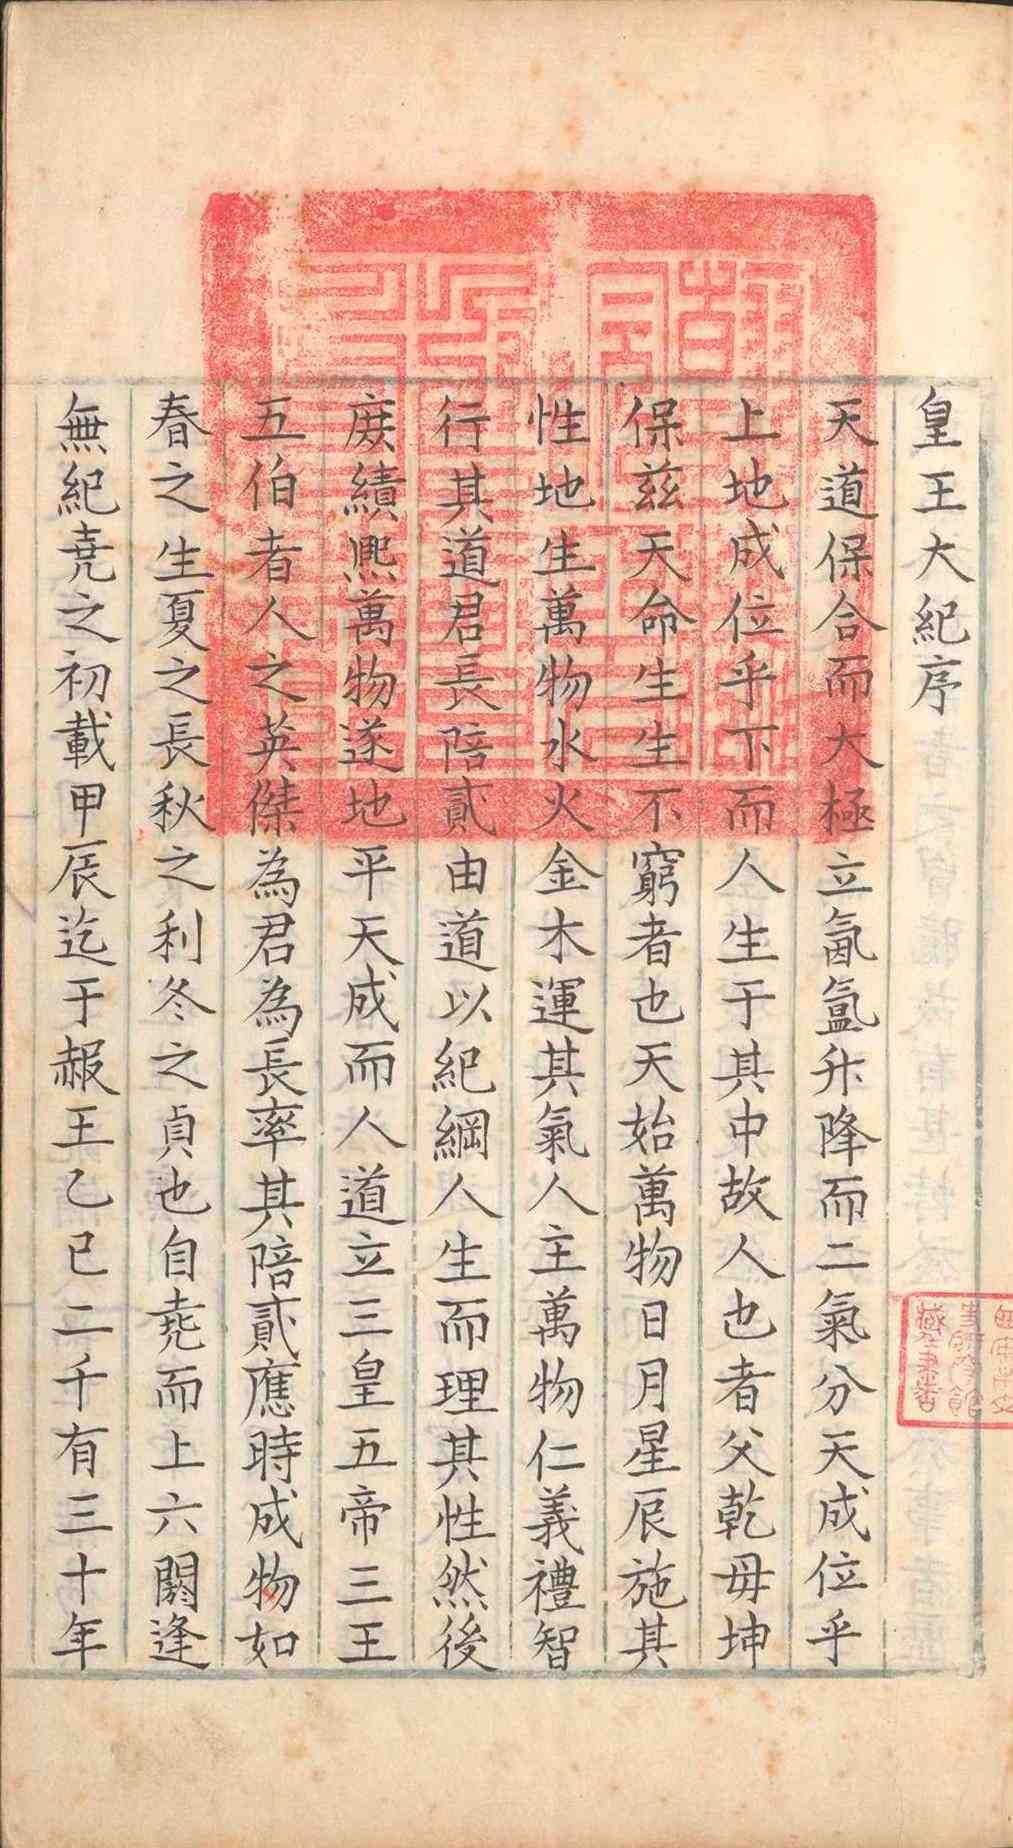 皇王大紀序
天道保合而大極立氤氳升降而二氣分天成位乎
上地成位乎下而人生于其中故人也者父乾毋坤
保兹天命生生不窮者也天始萬物日月星辰施其
性地生萬物水火金木運其氣人主萬物仁義禮智
行其道君長陪貳由道以紀綱人生而理其性然後
庻績熈萬物遂地平天成而人道立三皇五帝三王
五伯者人之英傑為君為長率其陪貳應時成物如
春之生夏之長秋之利冬之貞也自尭而上六閼逢
無紀尭之初載甲辰迄于赧王乙巳二千有三十年